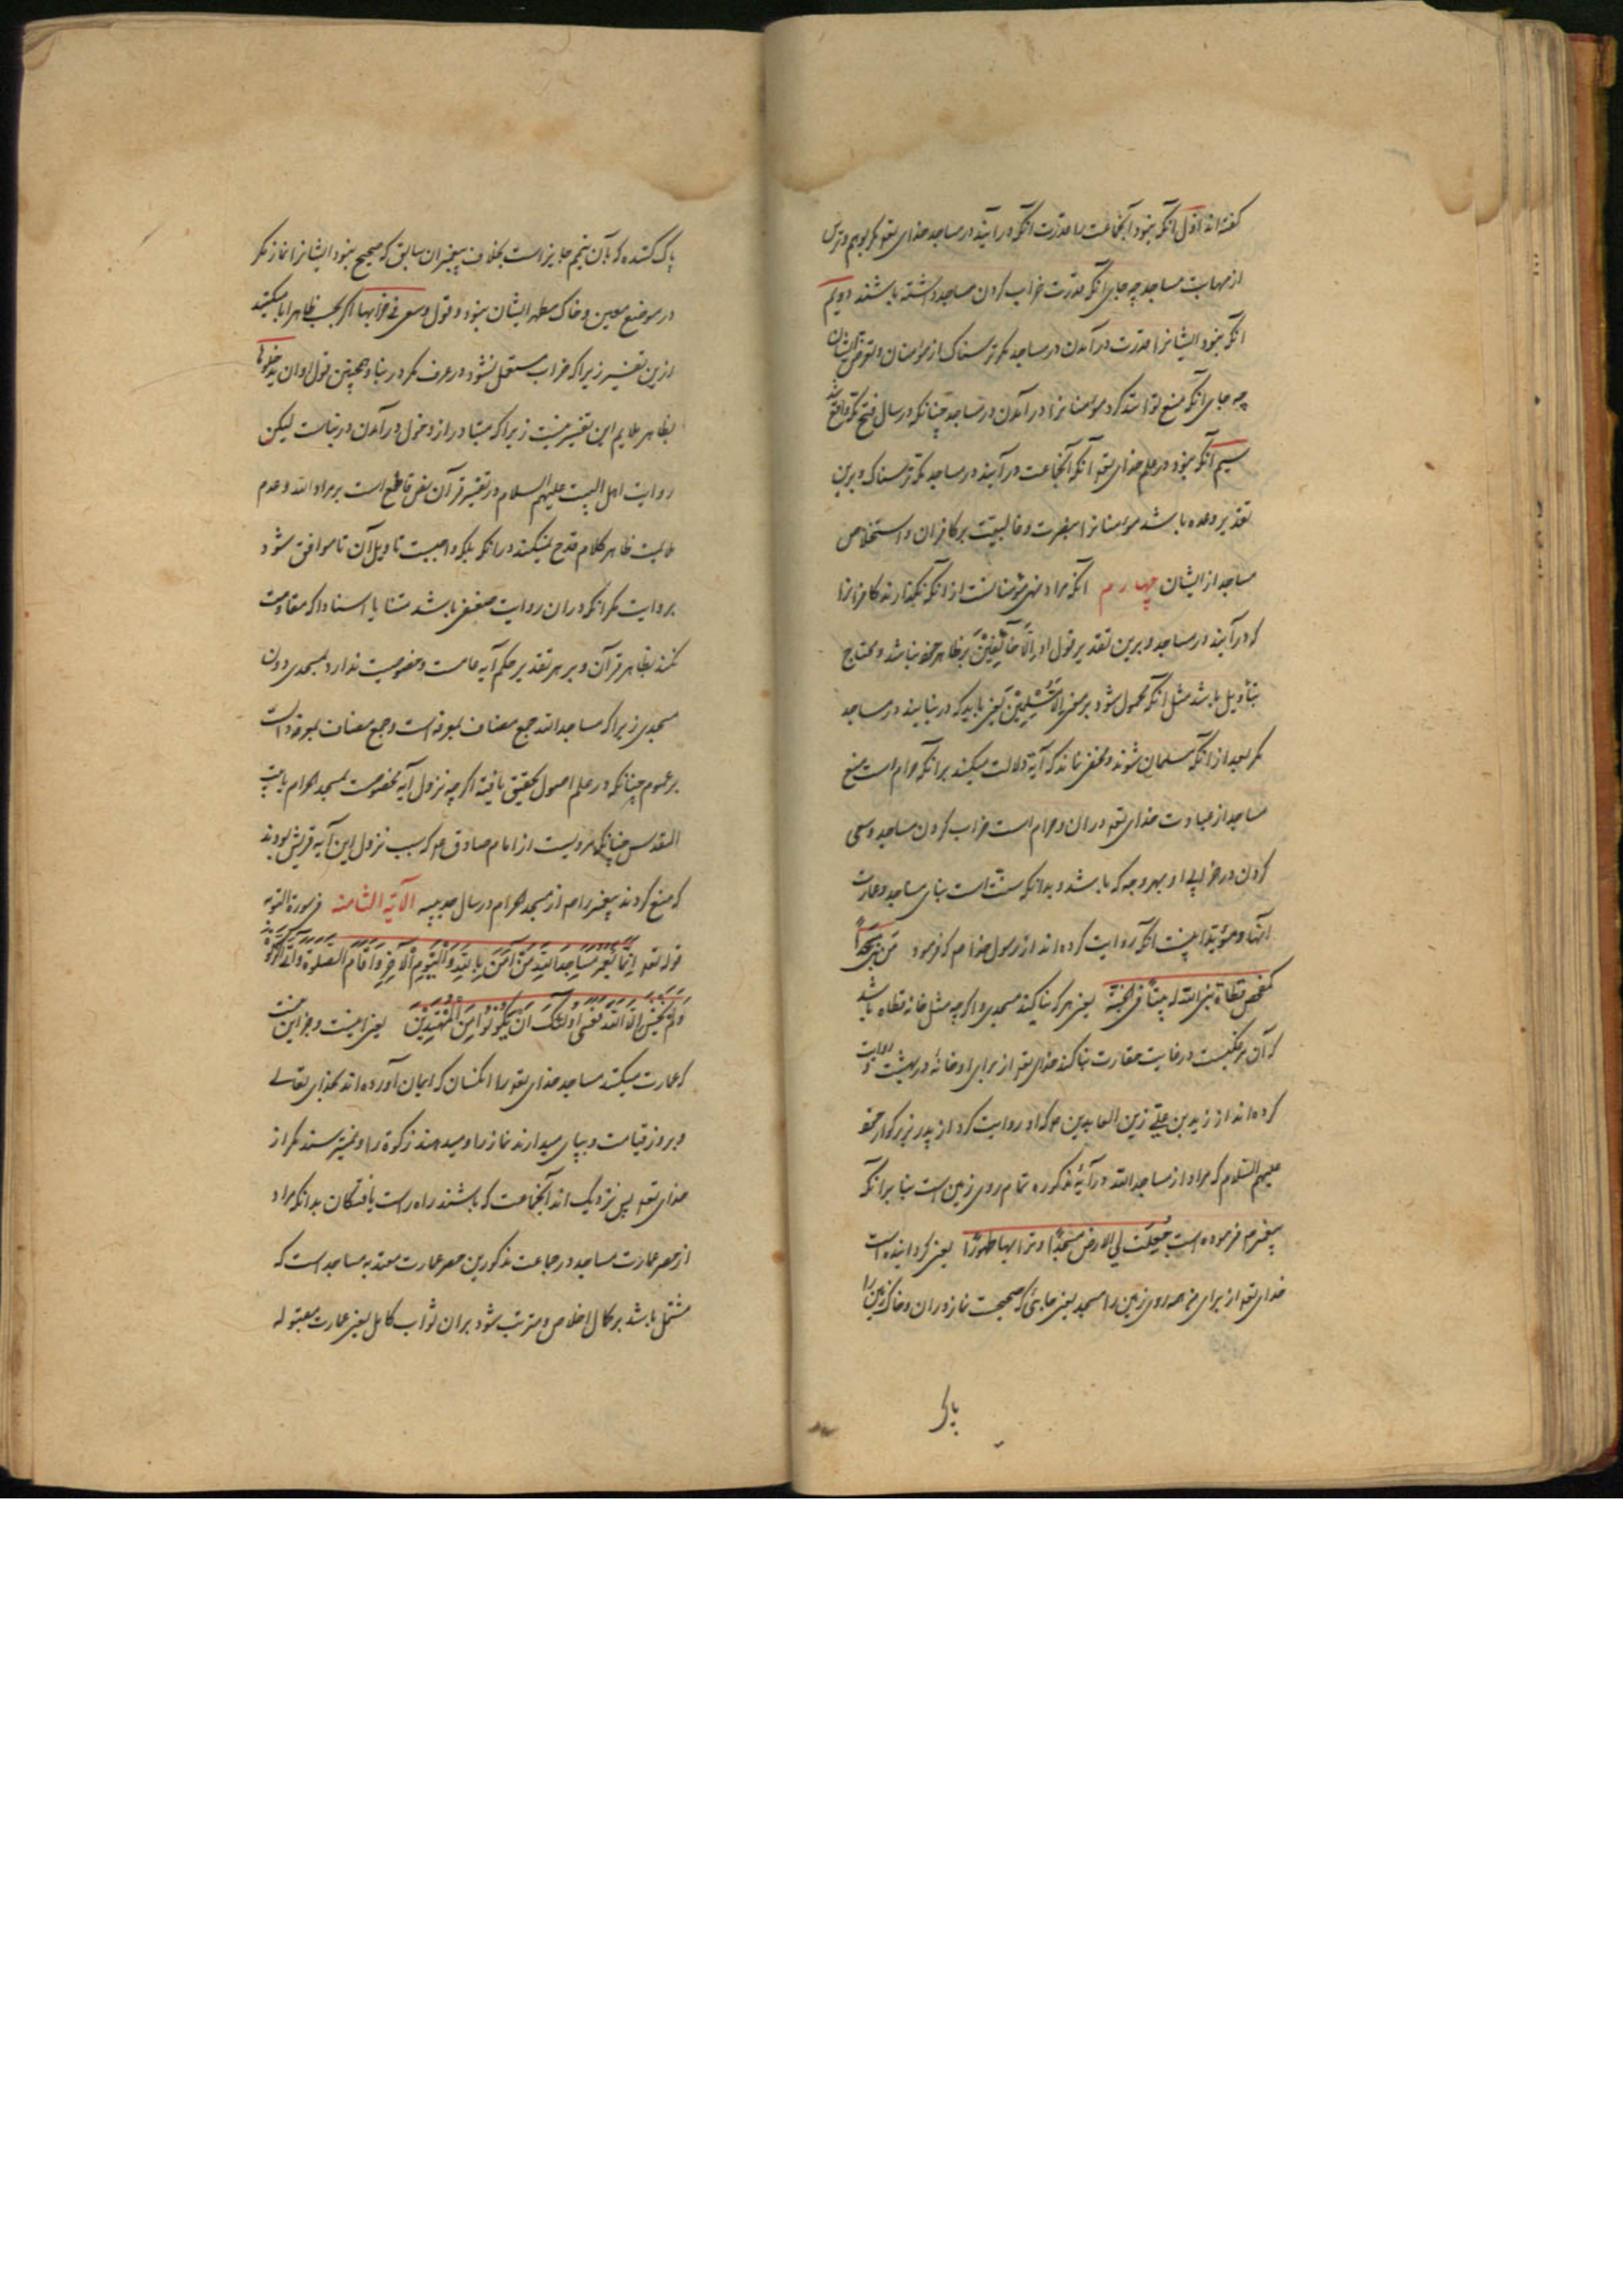 گفته‌اند اول آنکه نبود آنجماعت را قدرت آنکه درآیند در مساجد خدای تعو مگر بوهم و ترس
از مهابت مساجد چه جای آنکه قدرت خراب کردن مساجد داشته باشند دویم
آنکه نبود ایشانرا قدرت درآمدن در مساجد مگر ترسناک از مؤمنان و تعرض ایشان
چه جای آنکه منع توانند کرد مؤمنانرا درآمدن در مساجد چنانکه در سال فتح مکه واقع شد
سیم آنکه نبود در علم خدای تعو آنکه آنجماعت درآیند در مساجد مگر ترسناک و برین
تقدیر وعده باشد مؤمنانرا بنصرت و غالبیت بر کافران و استخلاص
مساجد از ایشان چهارم آنکه مراد نهی مؤمنانست از آنکه نگذارند کافرانرا
که درآیند در مساجد و برین تقدیر قول او اِلَّا خَآئِفِیْنَ بر ظاهر خود نباشد و محتاج
بتأویل باشد مثل آنکه محمول شود بر معنی اِلَّا مُسْلِمِیْنَ یعنی باید که در نیایند در مساجد
مگر بعد از آنکه مسلمان شوند و مخفی نماند که آیة دلالت میکند بر آنکه حرام است منع
مساجد از عبادت خدای تعو در ان و حرام است خراب کردن مساجد و سعی
کردن در خرابی او بهر وجه که باشد و بدانکه سنت است بنای مساجد و عمارت
آنها و مؤید اینست آنکه روایت کرده‌اند از رسول خدا ص که فرمود مَن بنی مَسْجِداً
کمفحص قطاة بنی الله له بیتاً فی الجنة یعنی هر که بنا کند مسجدی و اگرچه مثل خانه قطاه باشد
که آن مرغکیست در غایت حقارت بنا کند خدای تعو از برای او خانهٔ در بهشت و روایت
کرده‌اند از زید بن علی زین العابدین ع که او روایت کرد از پدر بزرگوار خود
علیهم السّلام که مراد از مساجد الله در آیهٔ مذکوره تمام روی زمین است بنا بر آنکه
پیغمبر ص فرموده است جُعِلَت لِی الارض مَسْجِدًا و ترابها طهورًا یعنی گردانیده است
خدای تعو از برای من همه روی زمین را مسجد یعنی جائی که صحیحست نماز در ان و خاک زمین را
پاک
پاک کننده که بآن تیمم جایز است بخلاف پیغمبران سابق که صحیح نبود ایشانرا نماز مگر
در موضع معین و خاک مطهر ایشان نبود و قول و سعی فی خرابها اگر بحسب ظاهر ابا میکند
ازین تفسیر زیرا که خراب مستعمل نشود در عرف مگر در بنا و همچنین قول او ان یدخلوها
بظاهر ملایم این تفسیر نیست زیرا که متبادر از دخول درآمدن در بناست لیکن
روایت اهل البیت علیهم السلام در تفسیر قرآن نص قاطع است بر مراد الله و عدم
ملایمت ظاهر کلام قدح نمیکند در آنکه بلکه واجبست تاویل آن تا موافق شود
بروایت مگر آنکه در ان روایت ضعفی باشد متنا یا اسنادا که مقاومت
نکند بظاهر قرآن و بر هر تقدیر حکم آیه عامست و خصوصیت ندارد بمسجدی دون
مسجدی زیرا که مساجد الله جمع مضاف بمعرفه است و جمع مضاف بمعرفه دالست
بر عموم چنانکه در علم اصول تحقیق یافته اگرچه نزول آیه مخصوصست بمسجد الحرام یا بیت
المقدس چنانکه مرویست از امام صادق ع که سبب نزول این آیه قریش بودند
که منع کردند پیغمبر را ص از مسجد الحرام در سال حدیبیه الآیة الثامنة فی سورة التوبه
قوله تعو اِنَّمَا یَعْمُرُ مَسَاجِدَ اللّٰهِ مَنْ آمَنَ بِاللّٰهِ وَالْیَوْمِ الْآخِرِ وَاَقَامَ الصَّلٰوةَ وَاٰتَی الزَّکٰوةَ
وَلَمْ یَخْشَ اِلَّا اللّٰهَ فَعَسٰی اُولٰٓئِکَ اَنْ یَکُوْنُوْا مِنَ الْمُهْتَدِیْنَ یعنی اینست و جز این نیست
که عمارت میکنند مساجد خدای تعو را آنکسان که ایمان آورده‌اند بخدای تعالی
و بروز قیامت و بپای میدارند نماز را و میدهند زکوة را و نمیترسند مگر از
خدای تعو پس نزدیک‌اند آنجماعت که باشند راه راست یافتگان بدانکه مراد
از حصر عمارت مساجد در جماعت مذکورین حصر عمارت معتد به مساجد است که
مشتمل باشد بر کمال اخلاص و مترتب شود بران ثواب کامل یعنی عمارت مقبوله